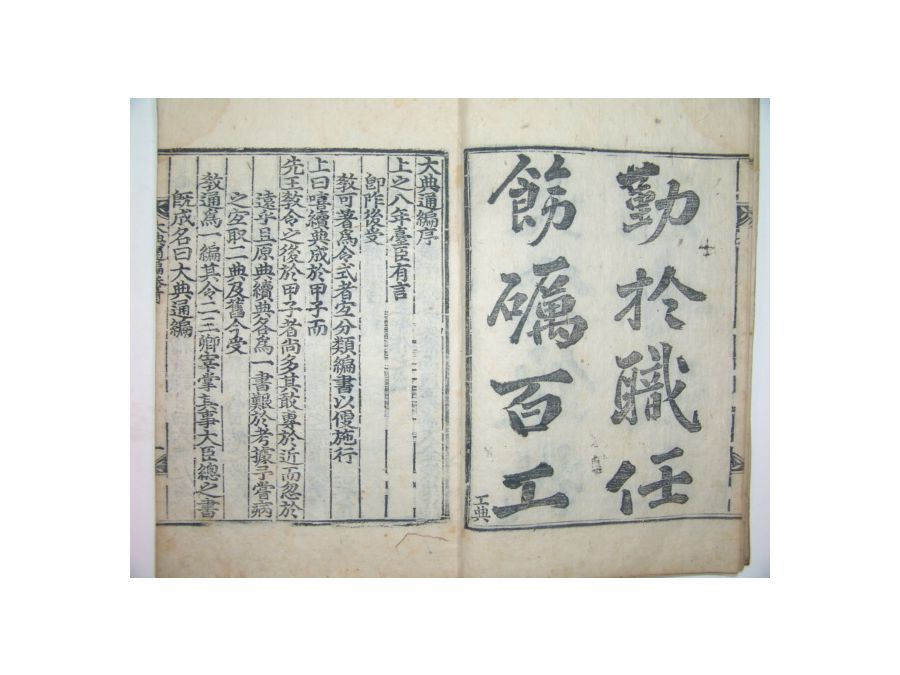 勤於職任
飭礪百工
工典
大典通編序
上之八年臺臣有言
卽阼後受
教可著爲令式者宜分類編書以便施行
上曰嘻續典成於甲子而
先王教令之後於甲子者尚多其敢專於近而忽於
遠乎且原典續典各爲一書艱於考據予嘗病
之宜取二典及舊今受
教通爲一編其令一二三卿宰掌其事大臣總之書
旣成名曰大典通編